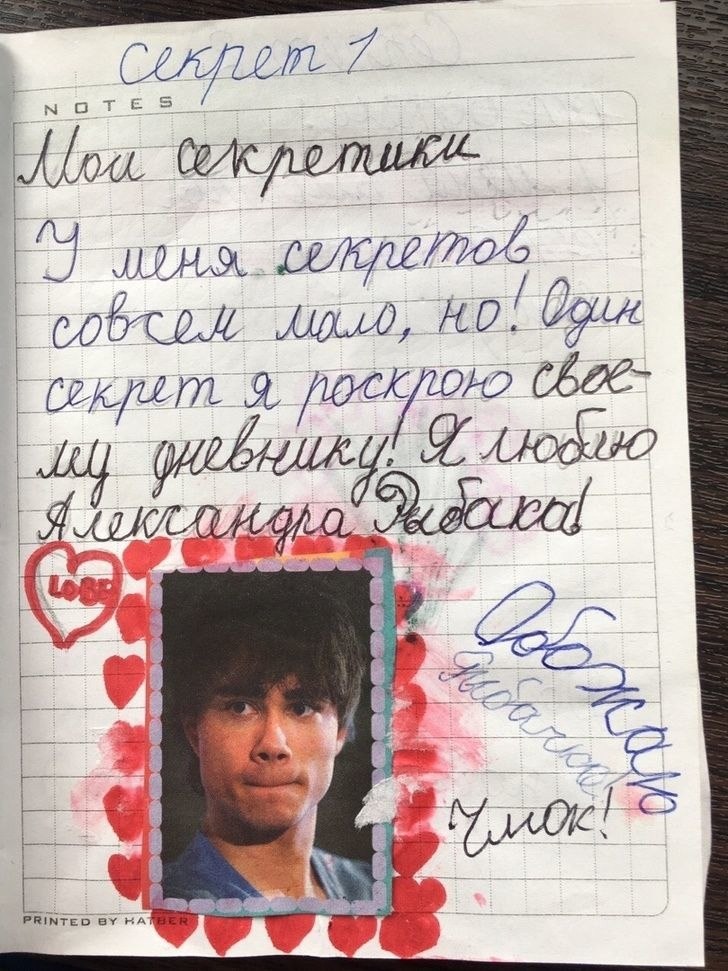 Секрет 1
NOTES
Мои секретики
У меня секретов
совсем мало, но! Один
секрет я роскрою свое-
му дневнику! Я люблю
Александра Рыбака!
LOBE
Обожаю
Рыбачка!
Чмок!
PRINTED BY KATBER